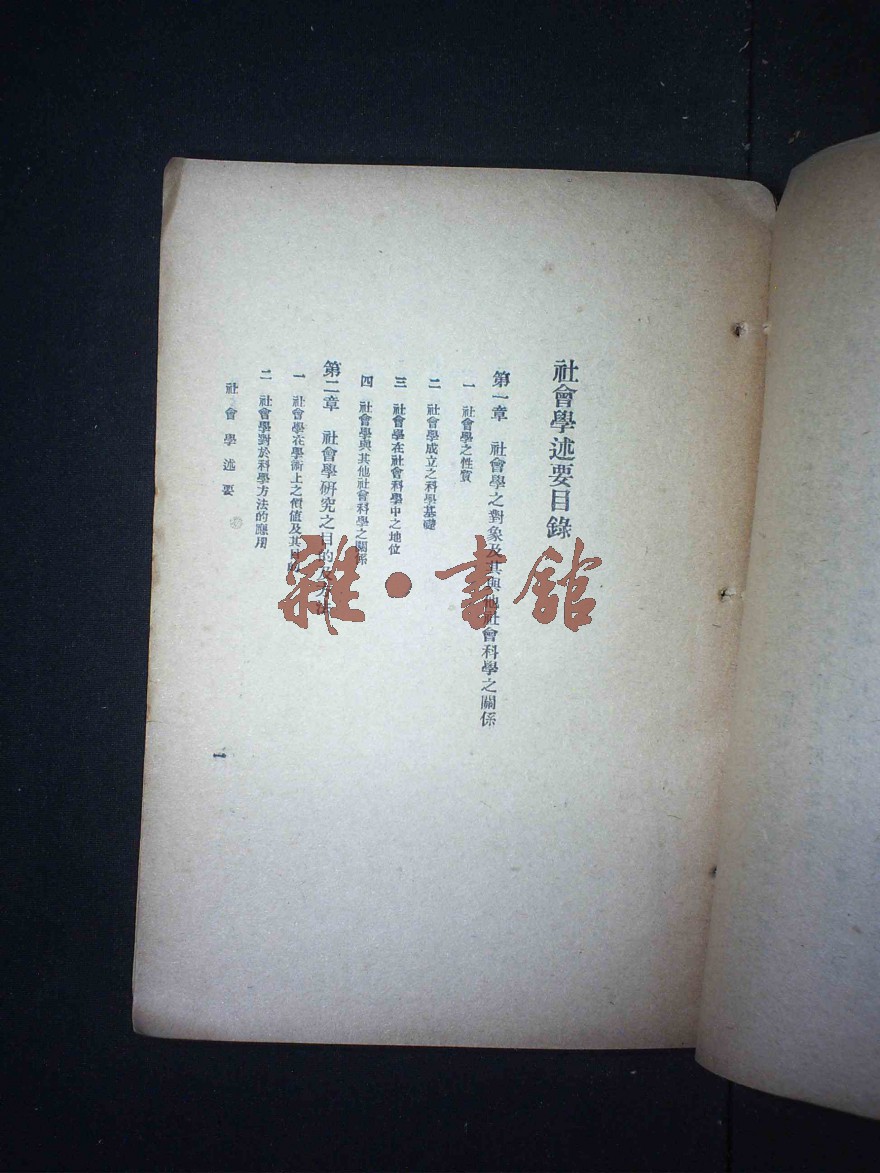 社會學述要目錄
第一章　社會學之對象及其與他社會科學之關係
一　社會學之性質
二　社會學成立之科學基礎
三　社會學在社會科學中之地位
四　社會學與其他社會科學之關係
第二章　社會學研究之目的及方法
一　社會學在學術上之價值及其
二　社會學對於科學方法的應用
社會學述要
一
雜·書館